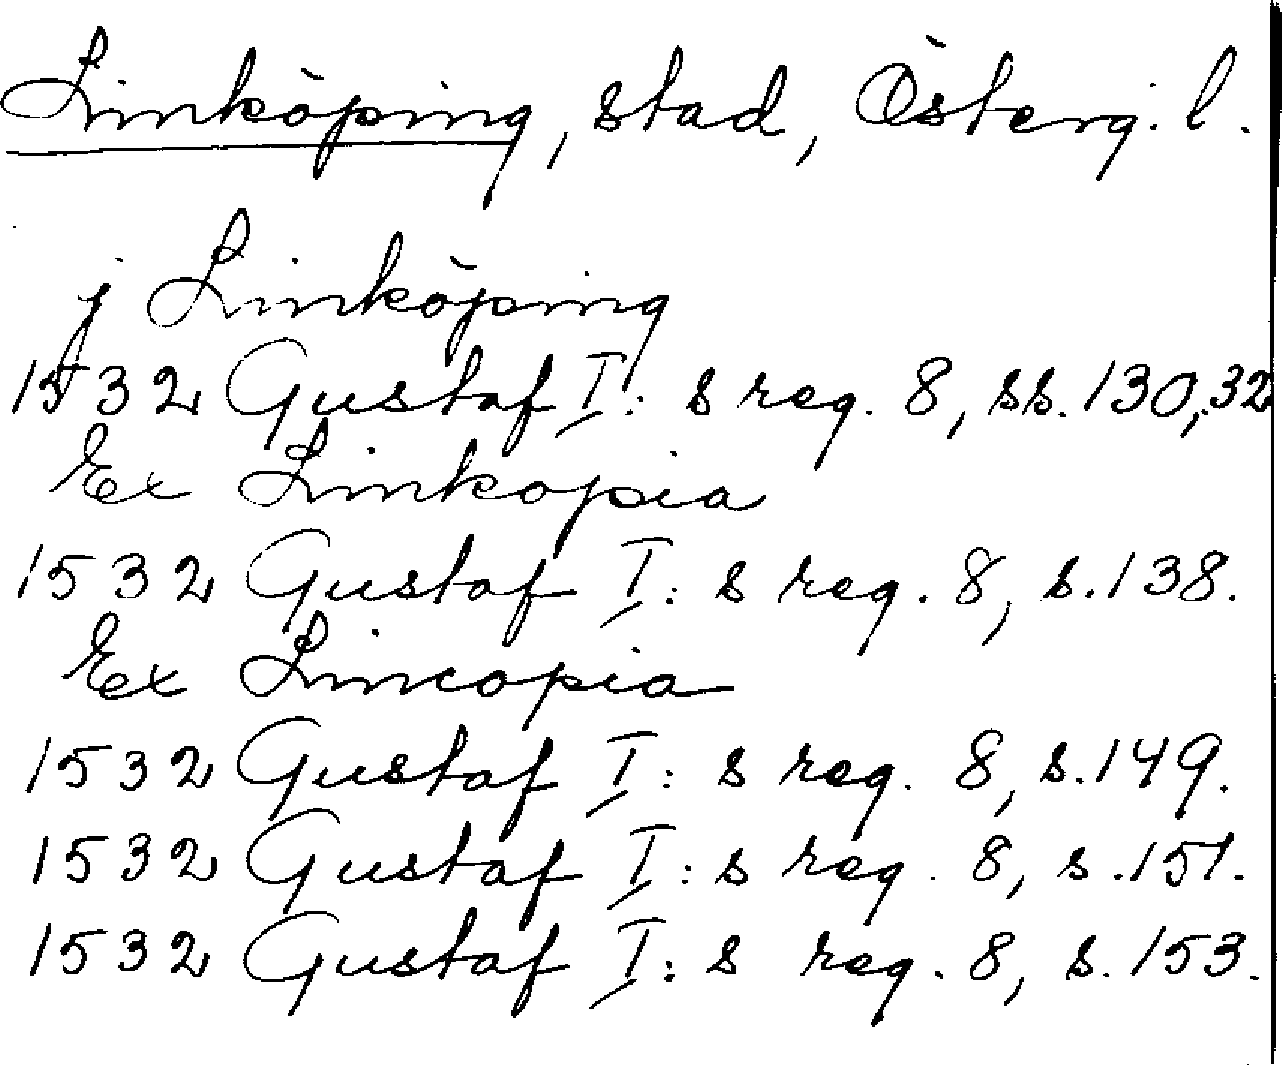 Linköping, stad, Österg. l.
j Linköping
1532 Gustaf I: s reg. 8, ss. 130, 32
Ex Linkopia
1532 Gustaf I: s reg. 8, s. 138.
Ex Lincopia
1532 Gustaf I: s reg. 8, s. 149.
1532 Gustaf I: s reg. 8, s. 151.
1532 Gustaf I: s reg. 8, s. 153.